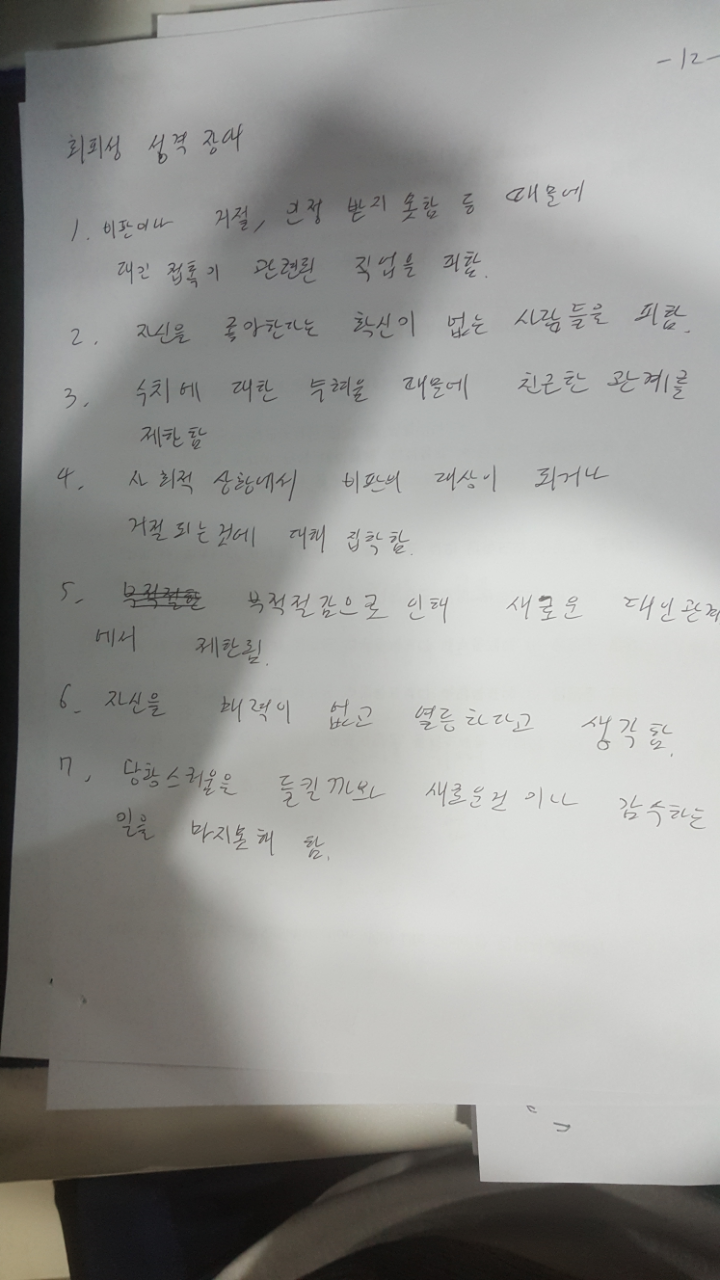 -12-
회피성 성격 장애
1. 비판이나 거절, 인정 받지 못함 등 때문에
대인 접촉이 관련된 직업을 피함.
2. 자신을 좋아한다는 확신이 없는 사람들을 피함.
3. 수치에 대한 두려움 때문에 친근한 관계를
제한함
4. 사회적 상황에서 비판의 대상이 되거나
거절되는것에 대해 집착함.
5. 부적절함 부적절감으로 인해 새로운 대인관계
에서 제한됨.
6. 자신을 매력이 없고 열등하다고 생각함.
7. 당황스러움을 들킬까봐 새로운것이나 감수하는
일을 마지못해 함.